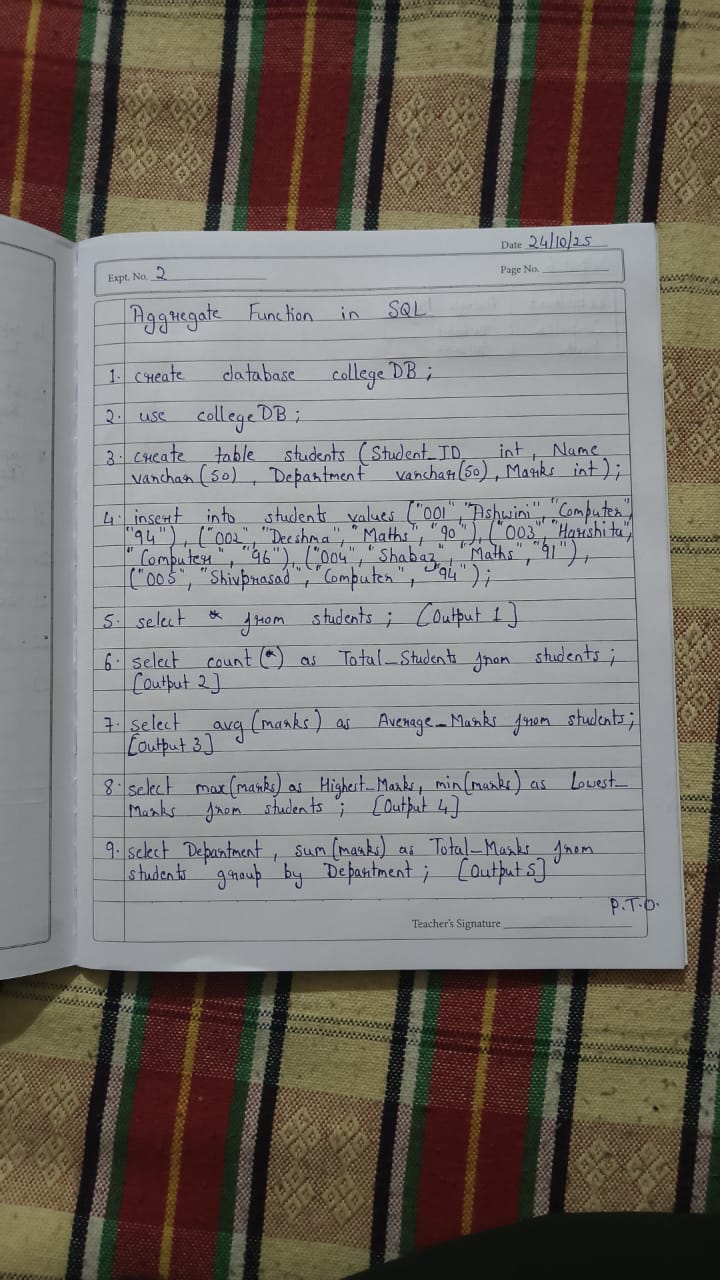 Date 24/10/25
Expt. No. 2
Page No.
Aggregate Function in SQL
1. create database collegeDB;
2. use collegeDB;
3. create table students (Student_ID int, Name
varchar(50), Department varchar(50), Marks int);
4. insert into students values ("001", "Ashwini", "Computer",
"94"), ("002", "Deeshma", "Maths", "90"), ("003", "Harshita",
"Computer", "96"), ("004", "Shabaz", "Maths", "91"),
("005", "Shivprasad", "Computer", "94");
5. select * from students; [Output 1]
6. select count(*) as Total_Students from students;
[Output 2]
7. select avg(marks) as Average_Marks from students;
[Output 3]
8. select max(marks) as Highest_Marks, min(marks) as Lowest_
Marks from students; [Output 4]
9. select Department, sum(marks) as Total_Marks from
students group by Department; [Output 5]
P.T.O.
Teacher's Signature